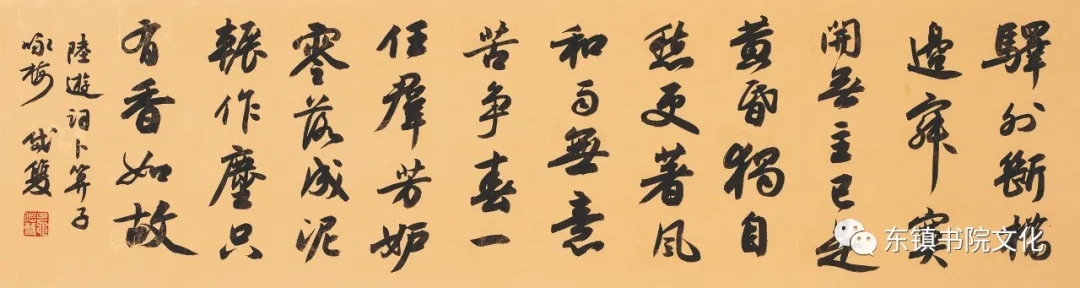 驛外斷橋
邊寂寞
開無主已是
黃昏獨自
愁更著風
和雨無意
苦爭春一
任羣芳妒
零落成泥
輾作塵只
有香如故
陸遊詞卜算子
咏梅
东镇书院文化